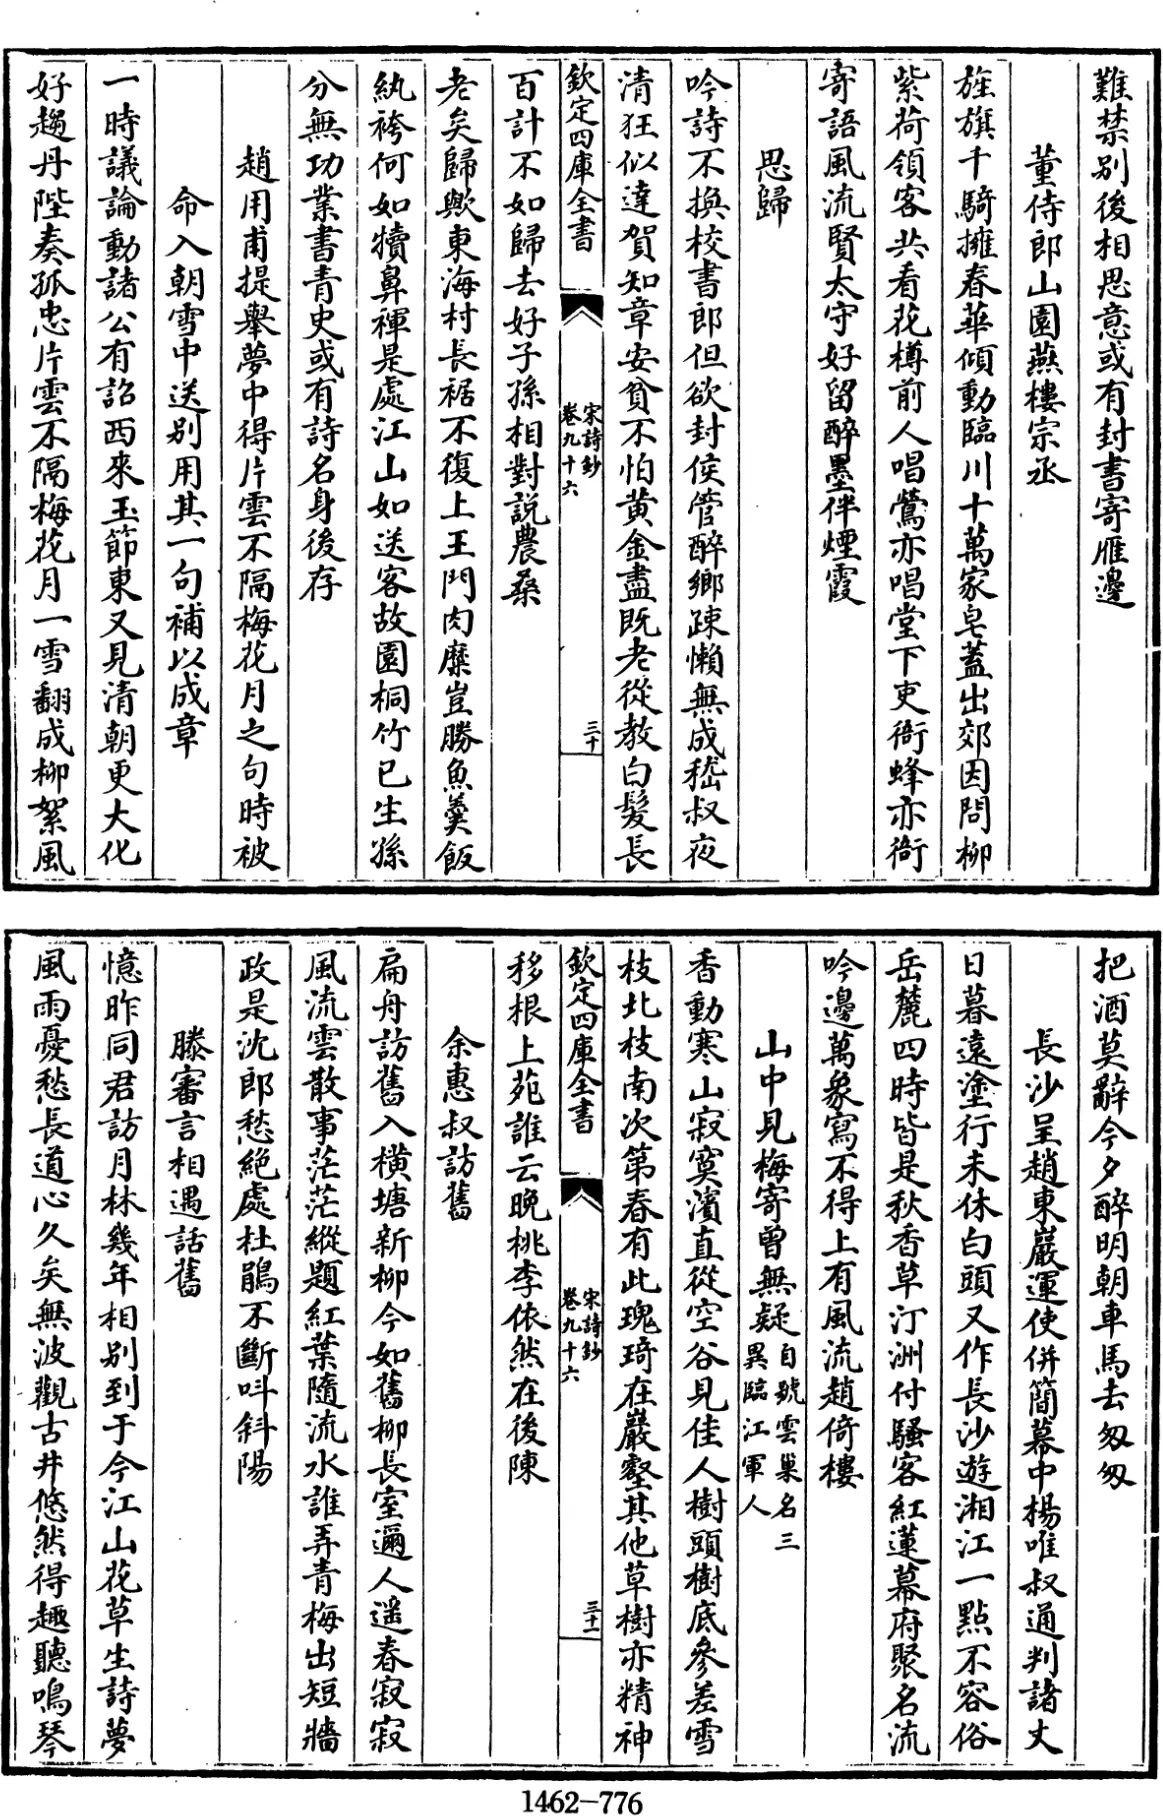 難禁别後相思意或有封書寄雁邊
董侍郎山園燕樓宗丞
旌旗千騎擁春華傾動臨川十萬家皂蓋出郊因問柳
紫荷領客共看花樽前人唱鶯亦唱堂下吏衙蜂亦衙
寄語風流賢太守好留醉墨伴煙霞
思歸
吟詩不換校書郎但欲封侯管醉鄉疎懶無成嵇叔夜
清狂似達賀知章安貧不怕黄金盡既老從教白髮長
欽定四庫全書
宋詩鈔
卷九十六
三十
百計不如歸去好子孫相對説農桑
老矣歸歟東海村長裾不復上王門肉糜豈勝魚羮飯
紈袴何如犢鼻褌是處江山如送客故園桐竹已生孫
分無功業書青史或有詩名身後存
趙用甫提舉夢中得片雲不隔梅花月之句時被
命入朝雪中送别用其一句補以成章
一時議論動諸公有詔西來玉節東又見清朝更大化
好趨丹陛奏孤忠片雲不隔梅花月一雪翻成柳絮風
把酒莫辭今夕醉明朝車馬去匆匆
長沙呈趙東巖運使併簡幕中楊唯叔通判諸丈
日暮遠塗行未休白頭又作長沙遊湘江一點不容俗
岳麓四時皆是秋香草汀洲付騷客紅蓮幕府聚名流
吟邊萬象寫不得上有風流趙倚樓
山中見梅寄曾無疑自號雲巢名三
異臨江軍人
香動寒山寂寞濱直從空谷見佳人樹頭樹底參差雪
枝北枝南次第春有此瑰琦在巖壑其他草樹亦精神
欽定四庫全書
宋詩鈔
卷九十六
三十一
移根上苑誰云晩桃李依然在後陳
余惠叔訪舊
扁舟訪舊入橫塘新柳今如舊柳長室邇人遥春寂寂
風流雲散事茫茫縱題紅葉隨流水誰弄青梅出短牆
政是沈郎愁絶處杜鵑不斷呌斜陽
滕審言相遇話舊
憶昨同君訪月林幾年相别到于今江山花草生詩夢
風雨憂愁長道心久矣無波觀古井悠然得趣聽鳴琴
1462-776